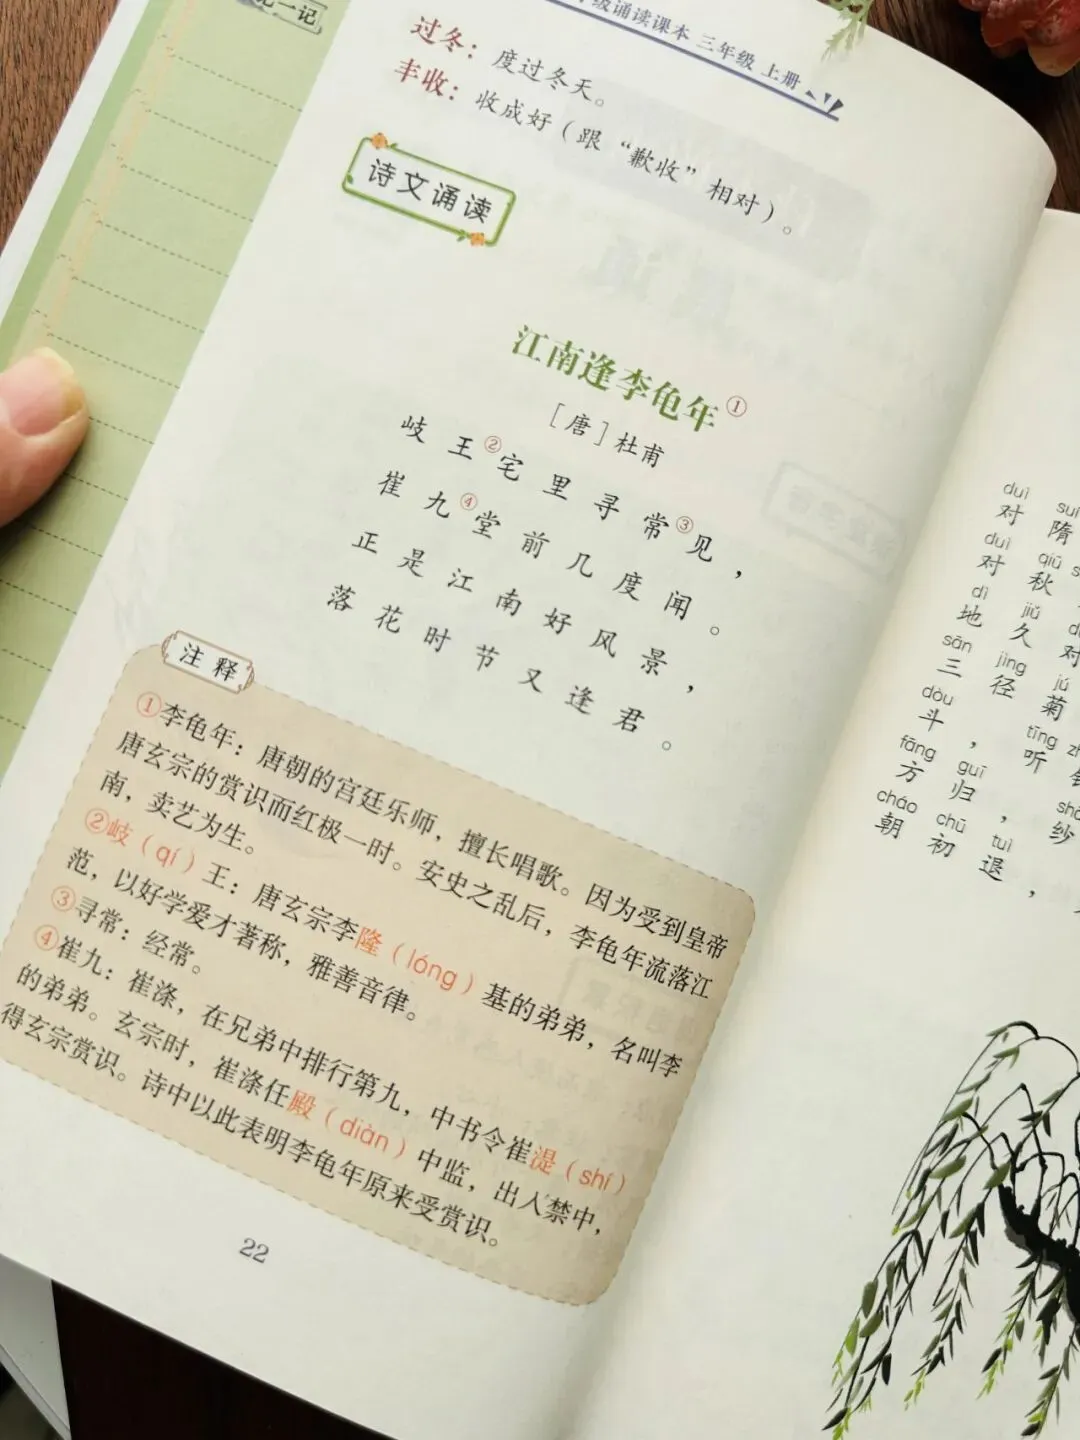 记一记
级诵读课本 三年级 上册
过冬：度过冬天。
丰收：收成好（跟“歉收”相对）。
诗文诵读
江南逢李龟年①
［唐］杜甫
岐王②宅里寻常③见，
崔九④堂前几度闻。
正是江南好风景，
落花时节又逢君。
注释
①李龟年：唐朝的宫廷乐师，擅长唱歌。因为受到皇帝
唐玄宗的赏识而红极一时。安史之乱后，李龟年流落江
南，卖艺为生。
②岐（qí）王：唐玄宗李隆（lóng）基的弟弟，名叫李
范，以好学爱才著称，雅善音律。
③寻常：经常。
④崔九：崔涤，在兄弟中排行第九，中书令崔湜（shí）
的弟弟。玄宗时，崔涤任殿（diàn）中监，出入禁中，
得玄宗赏识。诗中以此表明李龟年原来受赏识。
22
duì suí
对 隋
duì qiū
对 秋
dì jiǔ
地 久 对
sān jìng jú
三 径 菊
dòu tīng
斗，听
fāng guī
方 归，纱
cháo chū tuì
朝 初 退，